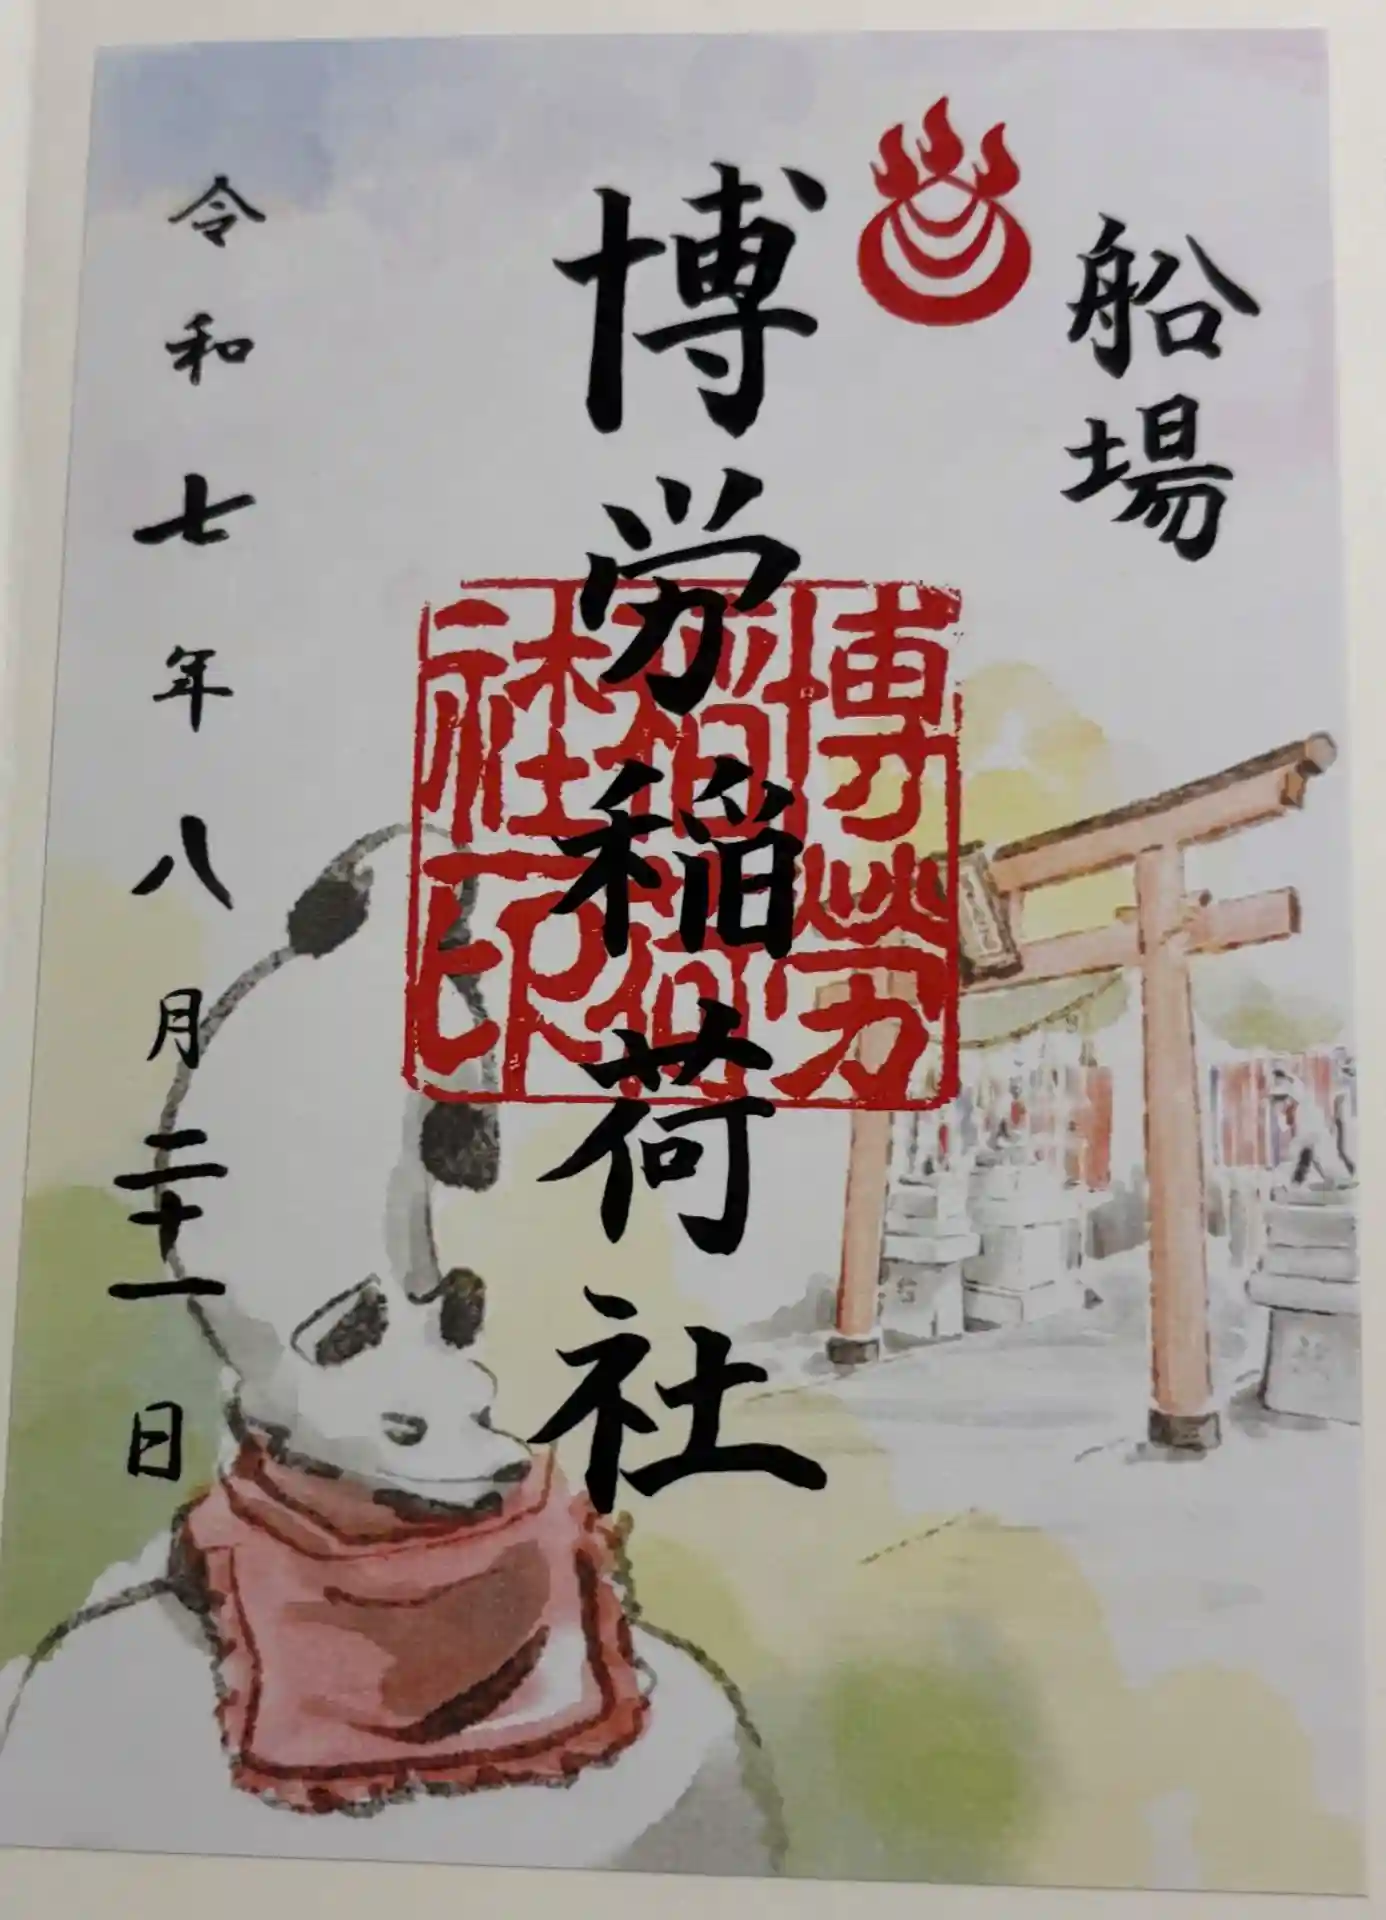 船場
博労稲荷社
博勞
稲荷
社印
令和七年八月二十一日